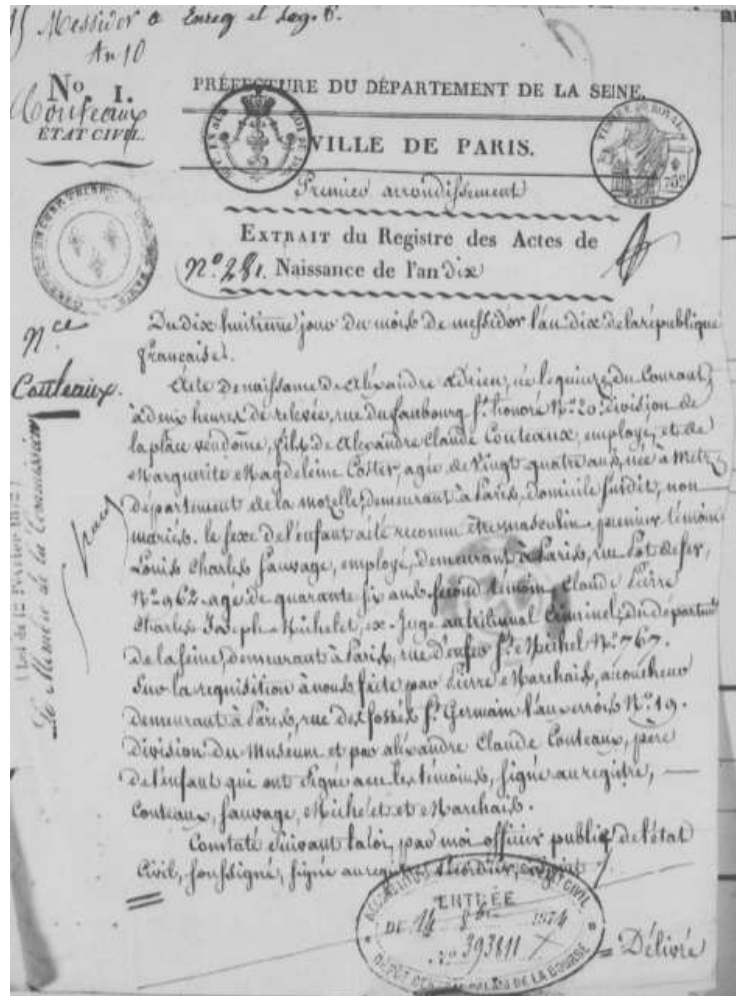 15 Messidor
An 10
No. I.
Couteaux
ÉTAT CIVIL.
PRÉFECTURE DU DÉPARTEMENT DE LA SEINE.
VILLE DE PARIS.
Premier arrondissement
EXTRAIT du Registre des Actes de
N.º 281. Naissance de l'an dix
N.ce
Couteaux.
Du dix huitieme jour du mois de messidor l'an dix de la république
française.
Acte de naissance de Alexandre Adrien, né le quinze du Courant,
à deux heures de relevée, rue du faubourg St. honoré N.º 20. division de
la place vendome, fils de Alexandre Claude Couteaux, employé, et de
Marguerite Magdeleine Coster, agée de Vingt quatre ans, née à Metz,
département de la mozelle, demeurant à Paris, domicile susdit, non
mariés. le sexe de l'enfant a été reconnu être masculin, premier témoin
Louis Charles Sauvage, employé, demeurant à Paris, rue Pot de fer,
N.º 962 agé de quarante six ans second témoin Claude Pierre
Charles Joseph Michelet, ex-Juge au tribunal Criminel du départnt
de la seine, demeurant à Paris, rue d'enfer St. Michel N.º 767.
Sur la requisition à nous faite par Pierre Marchais, accoucheur
demeurant à Paris, rue des fossés St. Germain l'auxerrois N.º 19.
Division du Muséum et par alexandre Claude Couteaux, père
de l'enfant qui ont signé avec les témoins, signé au registre,
Couteaux, Sauvage, Michelet et Marchais.
Constaté suivant la loi, par moi officier public de l'état
Civil, soussigné, signé au registre
(Loi du 12 Février 1872)
Le Membre de la Commission
ENTRÉE
DU 14 8bre 1874
N.º 393811
DÉPÔT PALAIS DE LA BOURSE
Délivré